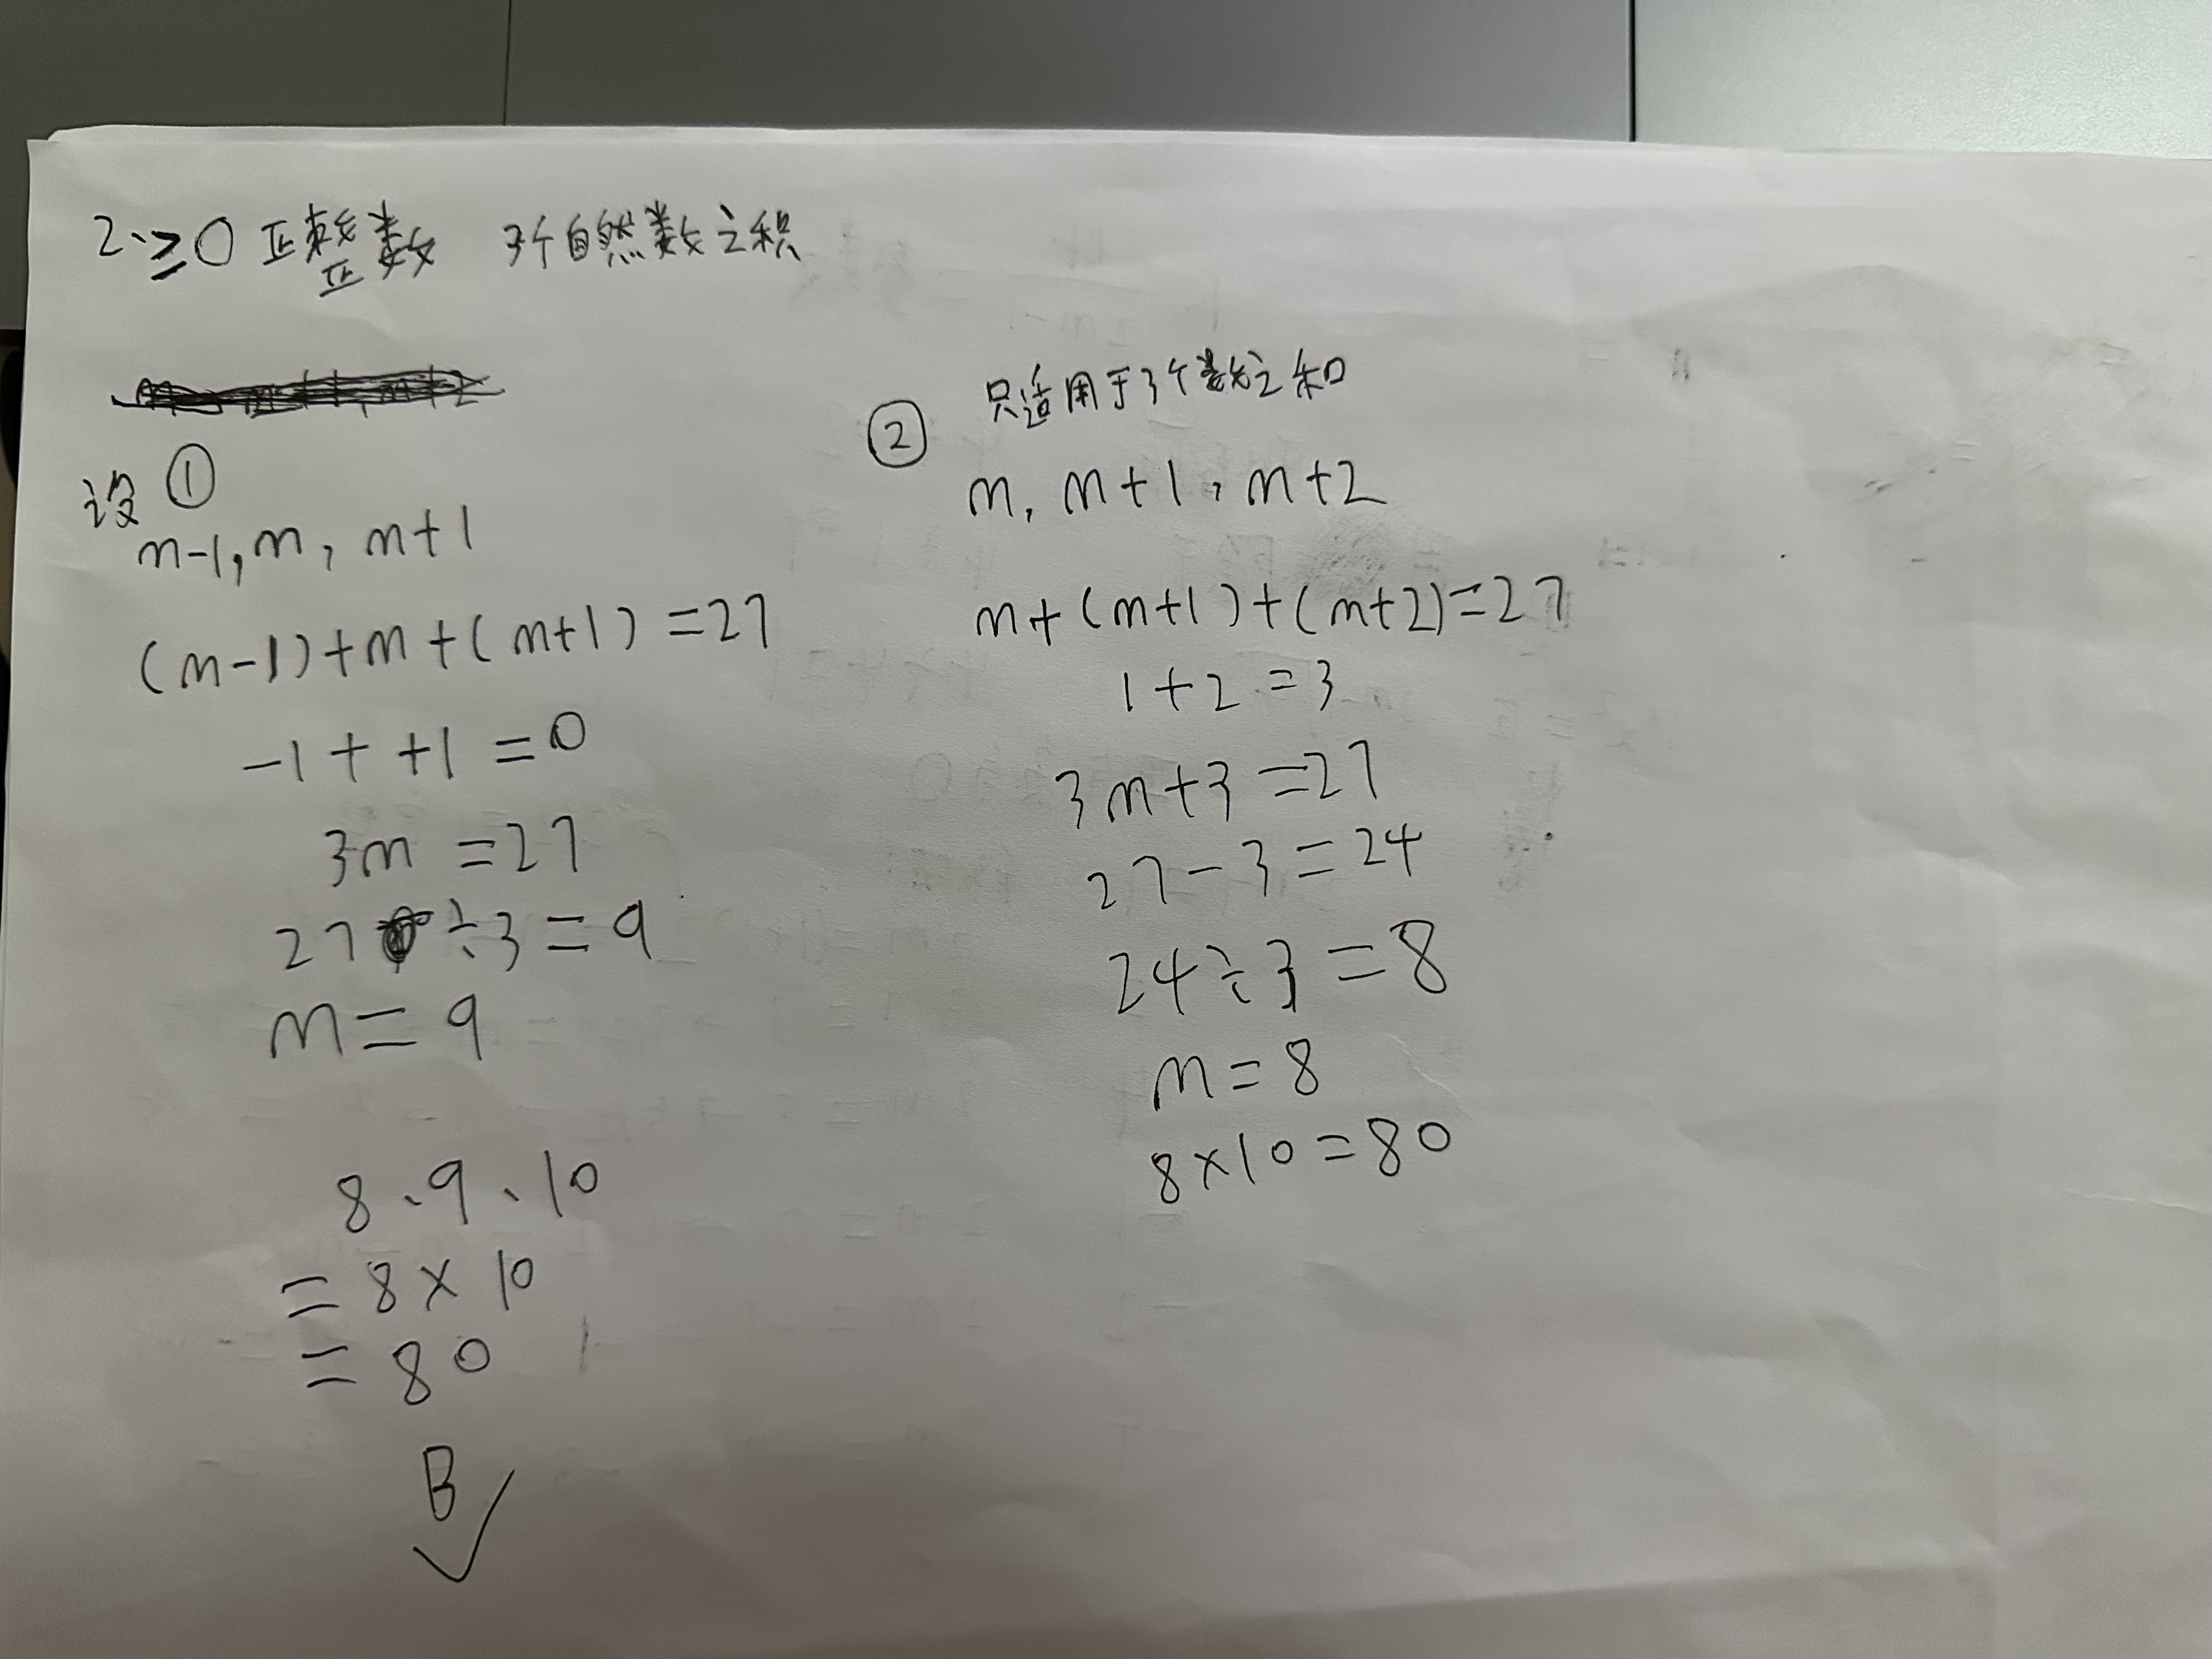 2. ≥0 正整数 3个自然数之积
设 ①
m-1, m, m+1
(m-1)+m+(m+1)=27
-1 + +1 =0
3m =27
27 ÷3=9
m=9
8、9、10
=8×10
=80
B ✓
② 只适用于3个数之和
m, m+1, m+2
m+(m+1)+(m+2)=27
1+2=3
3m+3=27
27-3=24
24÷3=8
m=8
8×10=80